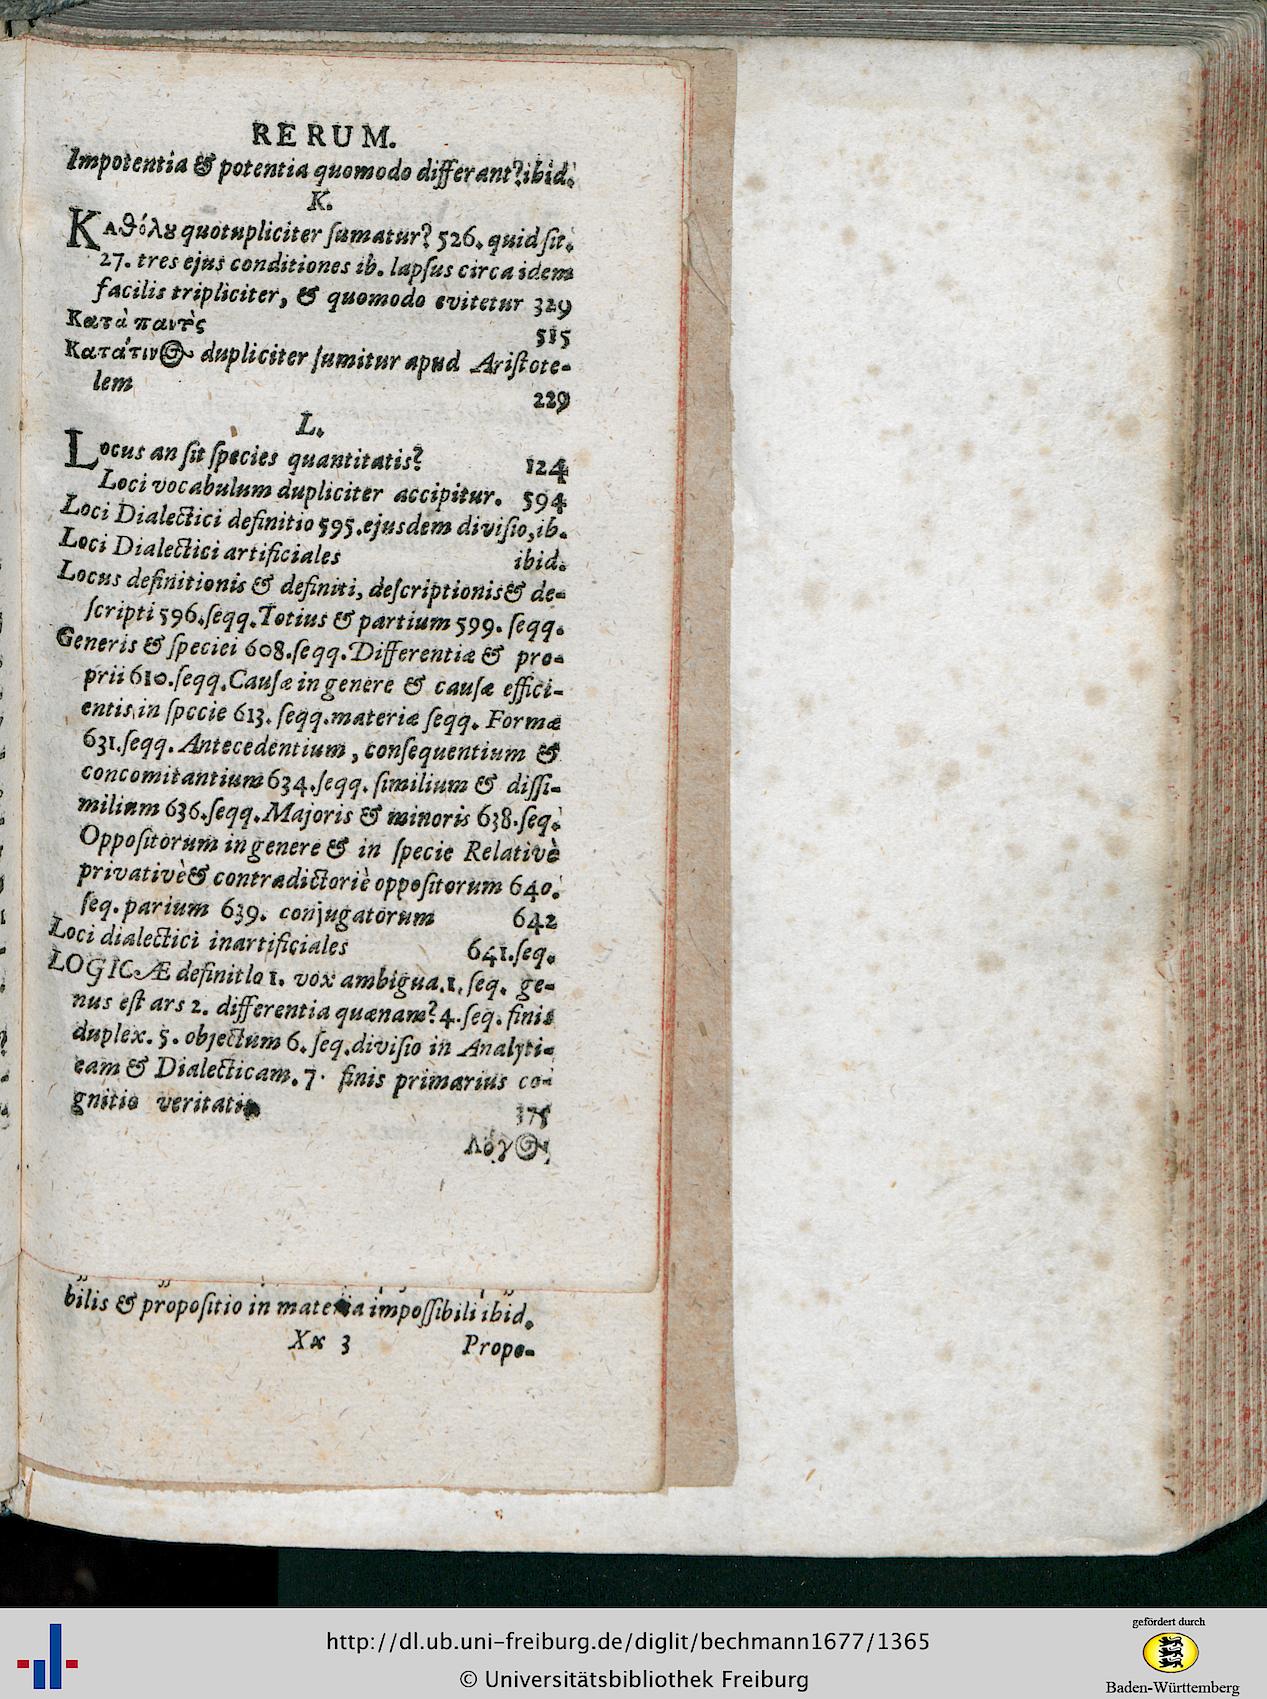 RERUM.
Impotentia & potentia quomodo differant? ibid.
K.
Καθόλȣ quotupliciter ſumatur? 526. quid ſit.
27. tres ejus conditiones ib. lapſus circa idem
facilis tripliciter, & quomodo evitetur 329
Κατὰ παντὸς 515
Κατάτινος dupliciter ſumitur apud Ariſtote-
lem 229
L.
Locus an ſit ſpecies quantitatis? 124
Loci vocabulum dupliciter accipitur. 594
Loci Dialectici definitio 595. ejusdem diviſio, ib.
Loci Dialectici artificiales ibid.
Locus definitionis & definiti, deſcriptionis & de-
ſcripti 596. ſeqq. Totius & partium 599. ſeqq.
Generis & ſpeciei 608. ſeqq. Differentiæ & pro-
prii 610. ſeqq. Cauſæ in genere & cauſæ effici-
entis in ſpecie 613. ſeqq. materiæ ſeqq. Formæ
631. ſeqq. Antecedentium, conſequentium &
concomitantium 634. ſeqq. ſimilium & diſſi-
milium 636. ſeqq. Majoris & minoris 638. ſeq.
Oppoſitorum in genere & in ſpecie Relativè
privativè & contradictoriè oppoſitorum 640.
ſeq. parium 639. conjugatorum 642
Loci dialectici inartificiales 641. ſeq.
LOGICÆ definitio 1. vox ambigua. 1. ſeq. ge-
nus eſt ars 2. differentia quænam? 4. ſeq. finis
duplex. 5. objectum 6. ſeq. diviſio in Analyti-
cam & Dialecticam. 7. finis primarius co-
gnitio veritatis
Λόγος
bilis & propoſitio in materia impoſſibili ibid.
Xx 3 Propo-
http://dl.ub.uni-freiburg.de/diglit/bechmann1677/1365
© Universitätsbibliothek Freiburg
gefördert durch
Baden-Württemberg